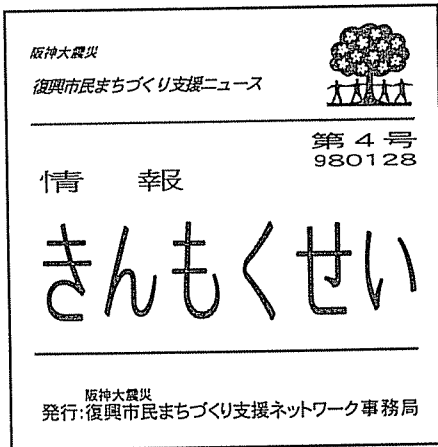 阪神大震災
復興市民まちづくり支援ニュース
第4号
980128
情 報
きんもくせい
阪神大震災
発行:復興市民まちづくり支援ネットワーク事務局